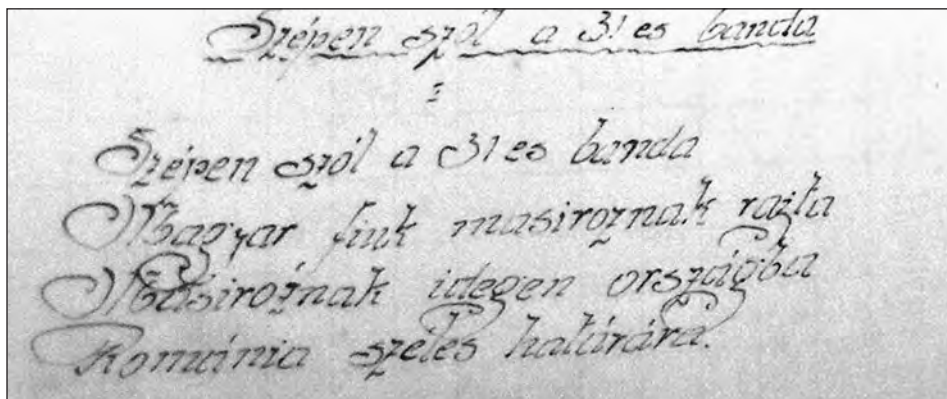 Szépen szól a 31 es banda
Szépen szól a 31 es banda
Magyar fiuk masiroznak rajta
Másiroznak idegen országba
Románia széles határára.